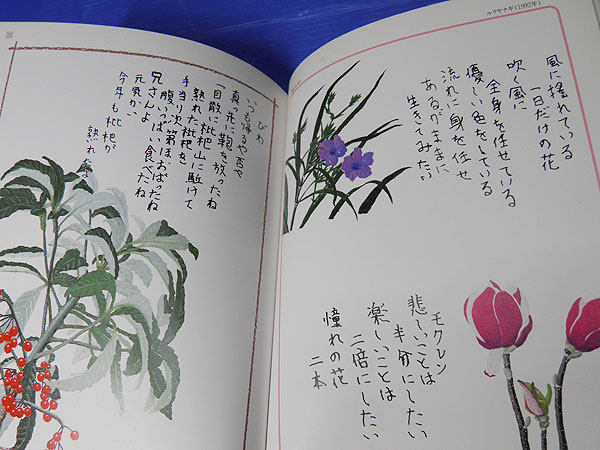 ルリヤナギ(1992年)
風に揺れている
一日だけの花
吹く風に
全身を任せている
優しい色をしている
流れに身を任せ
あるがままに
生きてみたい
モクレン
悲しいことは
半分にしたい
楽しいことは
二倍にしたい
憧れの花
二本
びわ
いつも帰るや否や
真っ先に鞄を放ったね
一目散に枇杷山に駈けて
熟れた枇杷を
手当り次第ほおばったね
腹いっぱい食べたね
兄さんよ
元気かい
今年も枇杷が
熟れ